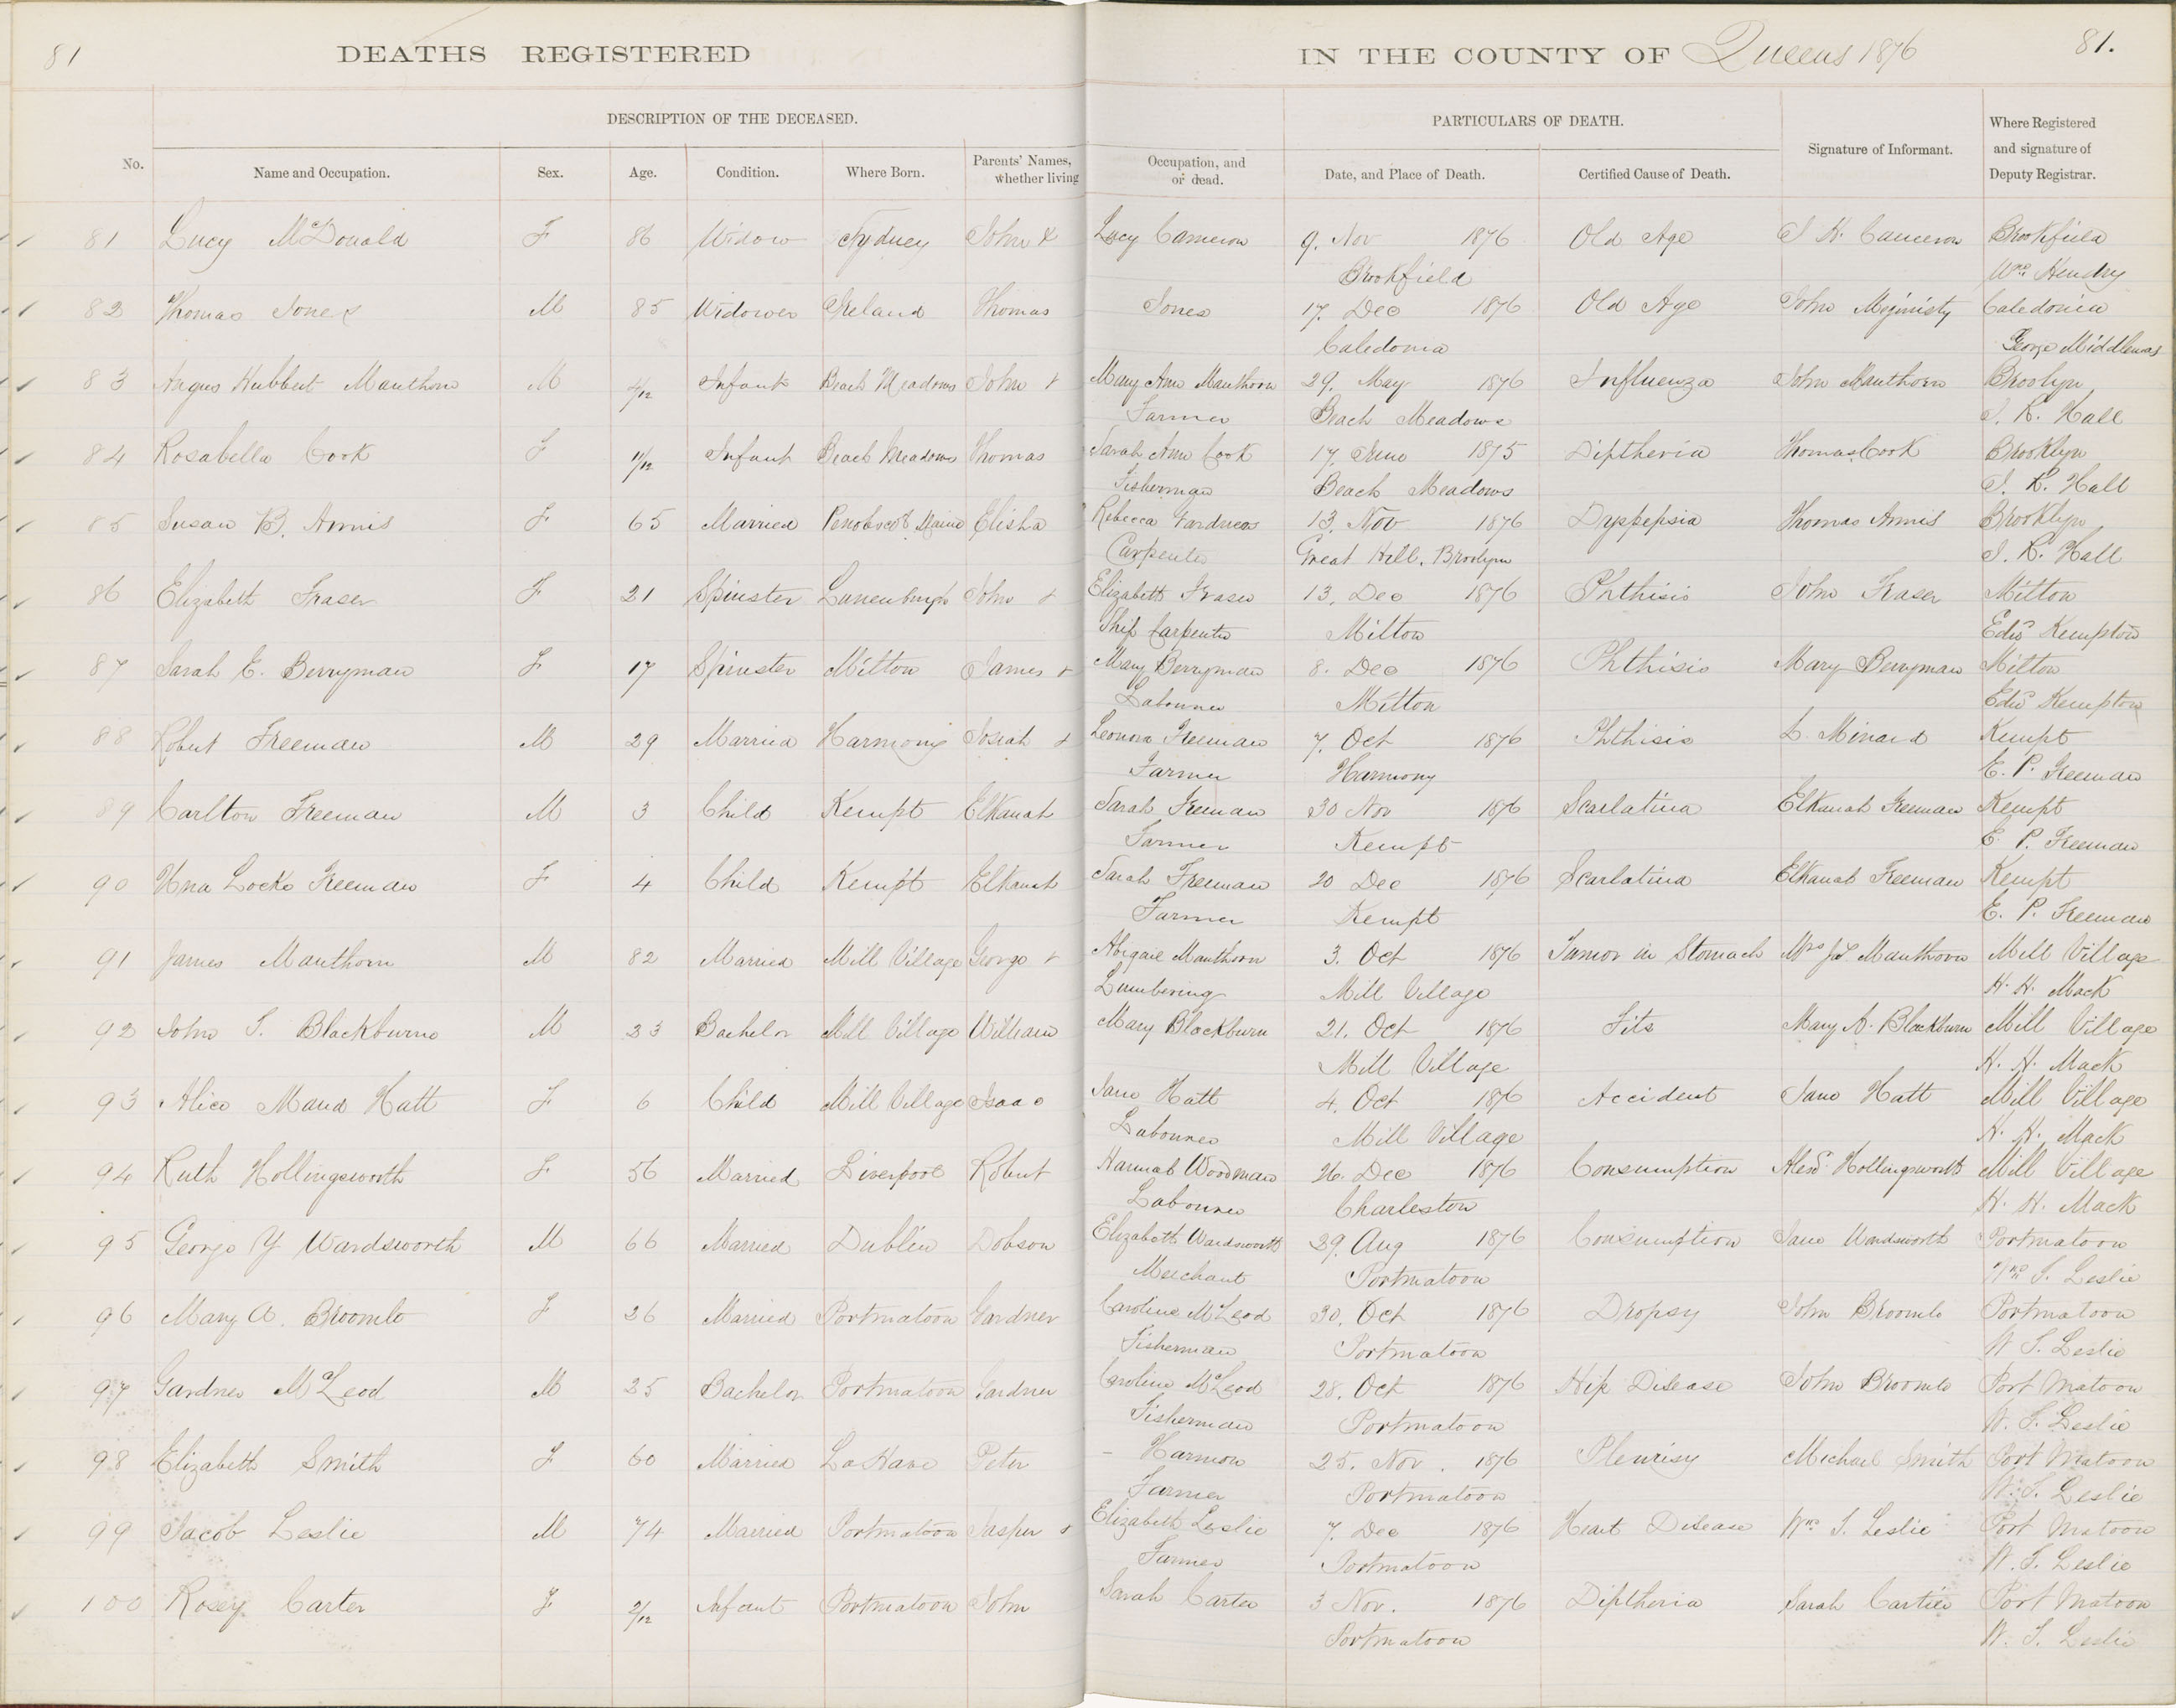 81
DEATHS REGISTERED
IN THE COUNTY OF Queens 1876
81.
DESCRIPTION OF THE DECEASED.
PARTICULARS OF DEATH.
No.
Name and Occupation.
Sex.
Age.
Condition.
Where Born.
Parents' Names, whether living
Occupation, and or dead.
Date, and Place of Death.
Certified Cause of Death.
Signature of Informant.
Where Registered
and signature of
Deputy Registrar.
81 Lucy McDonald F 86 Widow Sydney John & Lucy Cameron 9. Nov 1876 Old Age J H. Cameron Brookfield
Brookfield Wm Hendry
82 Thomas Jones M 85 Widower Ireland Thomas Jones 17. Dec 1876 Old Age John Meginisty Caledonia
Caledonia George Middlemas
83 Angus Hubbert Manthorn M 4/12 Infant Beach Meadows John & Mary Ann Manthorn 29. May 1876 Influenza John Manthorn Broolyn
Farmer Beach Meadows S. K. Hall
84 Rosabella Cook F 11/12 Infant Beach Meadows Thomas Sarah Ann Cook 17. June 1875 Diptheria Thomas Cook Brooklyn
Fisherman Beach Meadows S. K. Hall
85 Susan B. Annis F 65 Married Penobscot Maine Elisha Rebecca Gardner 13. Nov 1876 Dyspepsia Thomas Annis Brooklyn
Carpenter Great Hill. Broolyn S. K. Hall
86 Elizabeth Fraser F 21 Spinster Lunenburgh John & Elizabeth Fraser 13. Dec 1876 Phthisis John Fraser Milton
Ship Carpenter Milton Edw Kempton
87 Sarah E. Berryman F 17 Spinster Milton James & Mary Berryman 8. Dec 1876 Phthisis Mary Berryman Milton
Labourer Milton Edw Kempton
88 Robert Freeman M 29 Married Harmony Josiah & Leonora Freeman 7. Oct 1876 Phthisis L. Minard Kempt
Farmer Harmony E. P. Freeman
89 Carlton Freeman M 3 Child Kempt Elkanah Sarah Freeman 30 Nov 1876 Scarlatina Elkanah Freeman Kempt
Farmer Kempt E. P. Freeman
90 Una Locke Freeman F 4 Child Kempt Elkanah Sarah Freeman 20 Dec 1876 Scarlatina Elkanah Freeman Kempt
Farmer Kempt E. P. Freeman
91 James Manthorn M 82 Married Mill Village George & Abigail Manthorn 3. Oct 1876 Tumor in Stomach Mrs Js Manthorn Mill Village
Lumbering Mill Village H. H. Mack
92 John S. Blackburne M 23 Bachelor Mill Village William Mary Blackburn 21. Oct 1876 Fits Mary A. Blackburn Mill Village
Mill Village H. H. Mack
93 Alice Maud Hatt F 6 Child Mill Village Isaac Jane Hatt 4. Oct 1876 Accident Jane Hatt Mill Village
Labourer Mill Village H. H. Mack
94 Ruth Hollingsworth F 56 Married Liverpool Robert Hannah Woodman 26. Dec 1876 Consumption Alexr Hollingsworth Mill Village
Labourer Charleston H. H. Mack
95 George Y Wardsworth M 66 Married Dublin Dobson Elizabeth Wardsworth 29. Aug 1876 Consumption Jane Wardsworth Portmatoon
Merchant Portmatoon Wm S. Leslie
96 Mary A. Broomle F 26 Married Portmatoon Gardner Caroline McLeod 30. Oct 1876 Dropsy John Broomle Portmatoon
Fisherman Portmatoon W S. Leslie
97 Gardner McLeod M 25 Bachelor Portmatoon Gardner Caroline McLeod 28. Oct 1876 Hip Disease John Broomle Port Matoon
Fisherman Portmatoon W. S. Leslie
98 Elizabeth Smith F 60 Married LaHave Peter - Harmon 25. Nov. 1876 Pleurisy Michael Smith Port Matoon
Farmer Portmatoon W. S. Leslie
99 Jacob Leslie M 74 Married Portmatoon Jasper & Elizabeth Leslie 7. Dec 1876 Heart Disease Wm S. Leslie Port Matoon
Farmer Portmatoon W. S. Leslie
100 Rosey Carter F 2/12 Infant Portmatoon John Sarah Carter 3 Nov. 1876 Diptheria Sarah Cartier Port Matoon
Portmatoon W. S. Leslie